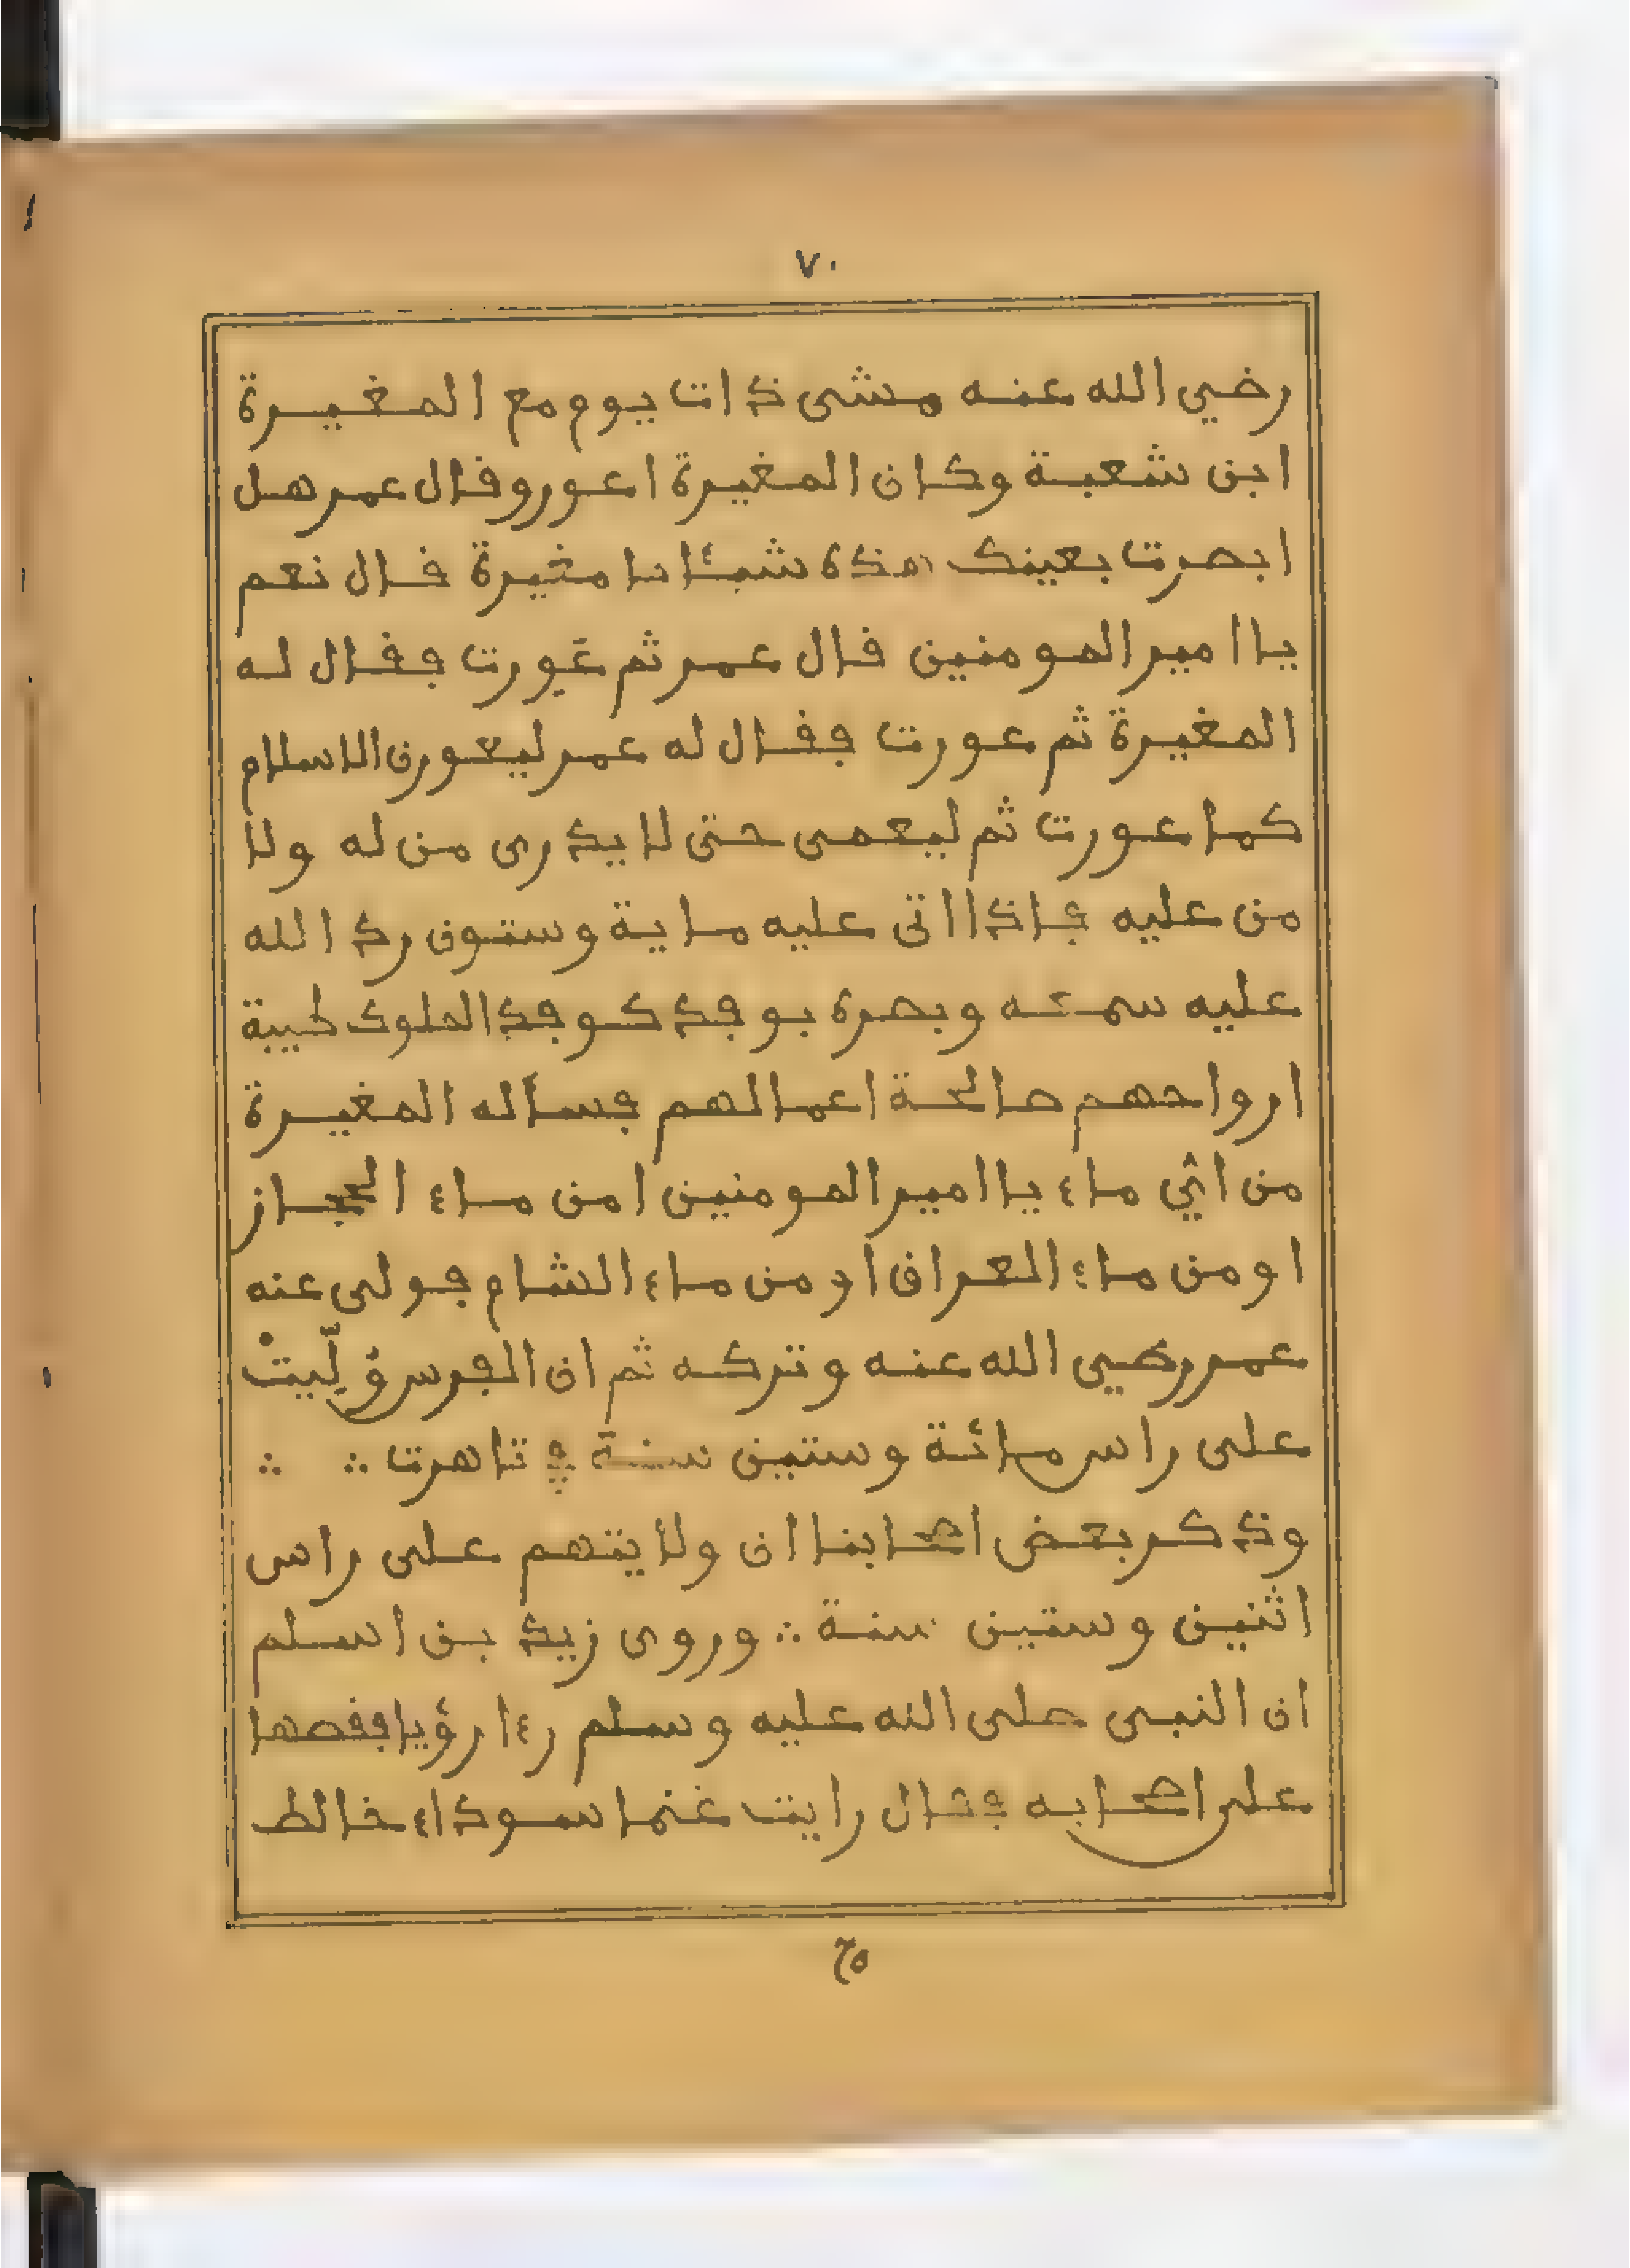 ٧٠
رضي الله عنه مشى ذات يوم مع المغيرة
ابن شعبة وكان المغيرة اعور وقال عمر هل
ابصرت بعينك هذه شيئا يا مغيرة قال نعم
يا امير المومنين قال عمر ثم عورت فقال له
المغيرة ثم عورت فقال له عمر ليعورن الاسلام
كما عورت ثم ليعمى حتى لا يدرى من له ولا
من عليه فاذا اتى عليه ماية وستون رد الله
عليه سمعه وبصره بوفد كوفد الملوك طيبة
ارواحهم صالحة اعمالهم فسأله المغيرة
من اي ماء يا امير المومنين امن ماء الحجاز
او من ماء العراق او من ماء الشام فولى عنه
عمر رضي الله عنه وتركه ثم ان الفرس وُلِّيتْ
على راس مائة وستين سنة في تاهرت ∴ ∴
وذكر بعض اصحابنا ان ولايتهم على راس
اثنين وستين سنة ∴ وروى زيد بن اسلم
ان النبى صلى الله عليه وسلم رءا رؤيا فقصها
على اصحابه فقال رايت غنما سوداء خالط